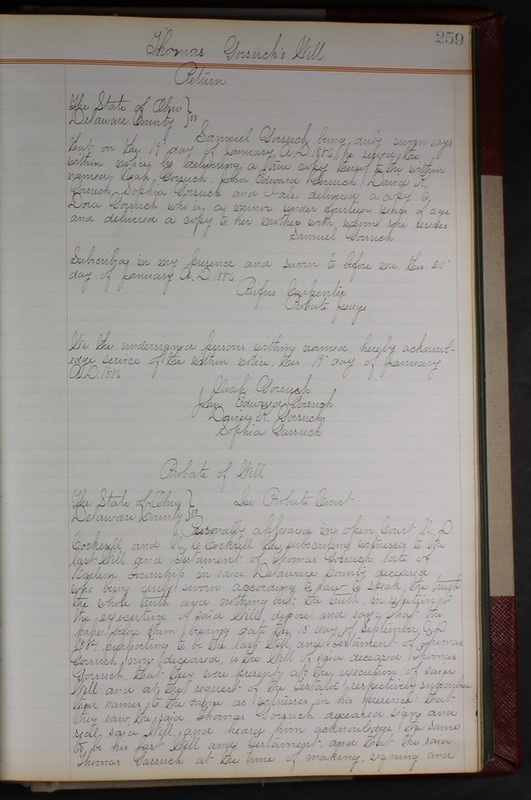 259
Thomas Gorsuch's Will
Return
The State of Ohio }
Delaware County } ss
Samuel Gorsuch being duly sworn says
that on the 19" day of January A.D. 1886 he served the
within notice by delivering a true copy thereof to the within
named, Noah Gorsuch John Edward Gorsuch, David R.
Gorsuch, Sophia Gorsuch and also delivered a copy to
Dora Gorsuch who is a minor under fourteen years of age
and delivered a copy to her mother with whom she resides
Samuel Gorsuch
Subscribed in my presence and sworn to before me, this 20"
day of January A.D. 1886
Rufus Carpenter
Probate Judge
We the undersigned persons within named, hereby acknowl-
edge service of the within notice, this 19" day of January
A.D. 1886
Noah Gorsuch
John Edward Gorsuch
David R. Gorsuch
Sophia Gorsuch
Probate of Will
The State of Ohio }
Delaware County } ss
In Probate Court
Personally appeared in open Court D.
Cockrell and Cockrell the subscribing witnesses to the
last Will and Testament of Thomas Gorsuch late of
Harlem Township in said Delaware County deceased
who being duly sworn according to law to speak the truth
the whole truth and nothing but the truth, in relation to
the execution of said Will, depose and say; that the
paper before them bearing date the 15 day of September A.D.
purporting to be the last Will and Testament of Thomas
Gorsuch now deceased, is the Will of said deceased Thomas
Gorsuch, that they were present at the execution of said
Will and at the request of the testator respectively subscribed
their names to the same as witnesses in his presence: that
they saw the said Thomas Gorsuch deceased sign and
seal said Will, and heard him acknowledge the same
to be his last Will and Testament. and that the said
Thomas Gorsuch at the time of making, signing and